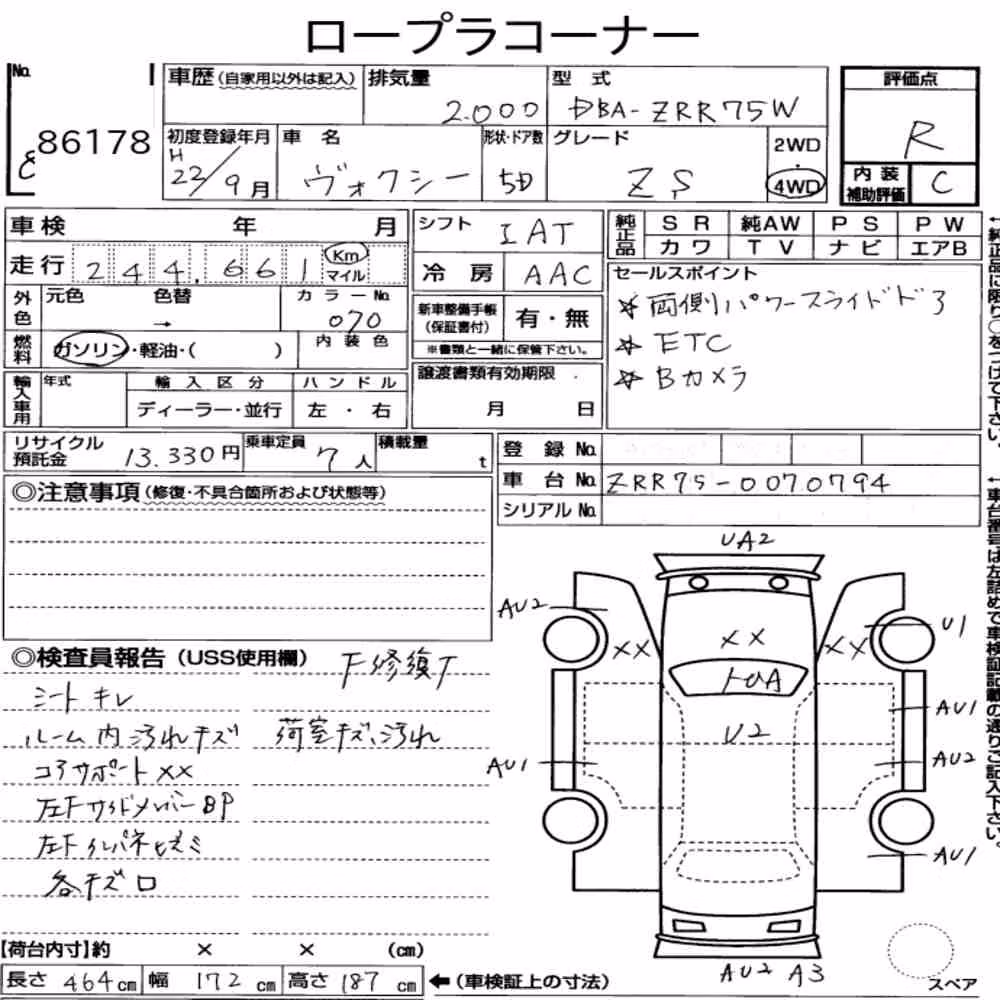 ロープラコーナー
No. 86178
車歴(自家用以外は記入) 排気量 2.000 型式 DBA-ZRR75W 評価点 R
初度登録年月 H 22/9月 車名 ヴォクシー 形状・ドア数 5D グレード ZS 2WD・4WD 内装補助評価 C
車検 年 月 シフト IAT 純正品 SR 純AW PS PW
カワ TV ナビ エアB
走行 244,661 Km マイル 冷房 AAC
セールスポイント
外色 元色 色替 → カラーNo. 070 新車整備手帳(保証書付) 有・無
※書類と一緒に保管下さい。
＊両側パワースライドドア
＊ETC
＊Bカメラ
燃料 ガソリン・軽油・( ) 内装色
輸入車用 年式 輸入区分 ハンドル
ディーラー・並行 左・右
譲渡書類有効期限
月 日
リサイクル預託金 13.330円 乗車定員 7人 積載量 t
登録No.
車台No. ZRR75-0070794
シリアルNo.
◎注意事項(修復・不具合箇所および状態等)
◎検査員報告(USS使用欄) F修復T
シートキレ
ルーム内汚れキズ 荷室キズ、汚れ
コアサポートXX
左FサイドメンバーBP
左Fインパネヒズミ
各キズロ
UA2
AU2
XX XX XX
U1
トUA
AU1
U2
AU1 AU2
AU1
AU2 A3
スペア
【荷台内寸】約 × × (cm)
長さ 464cm 幅 172cm 高さ 187cm ←(車検証上の寸法)
↑純正品に限り○をつけて下さい。
↑車台番号は左詰めで車検証記載の通りご記入下さい。